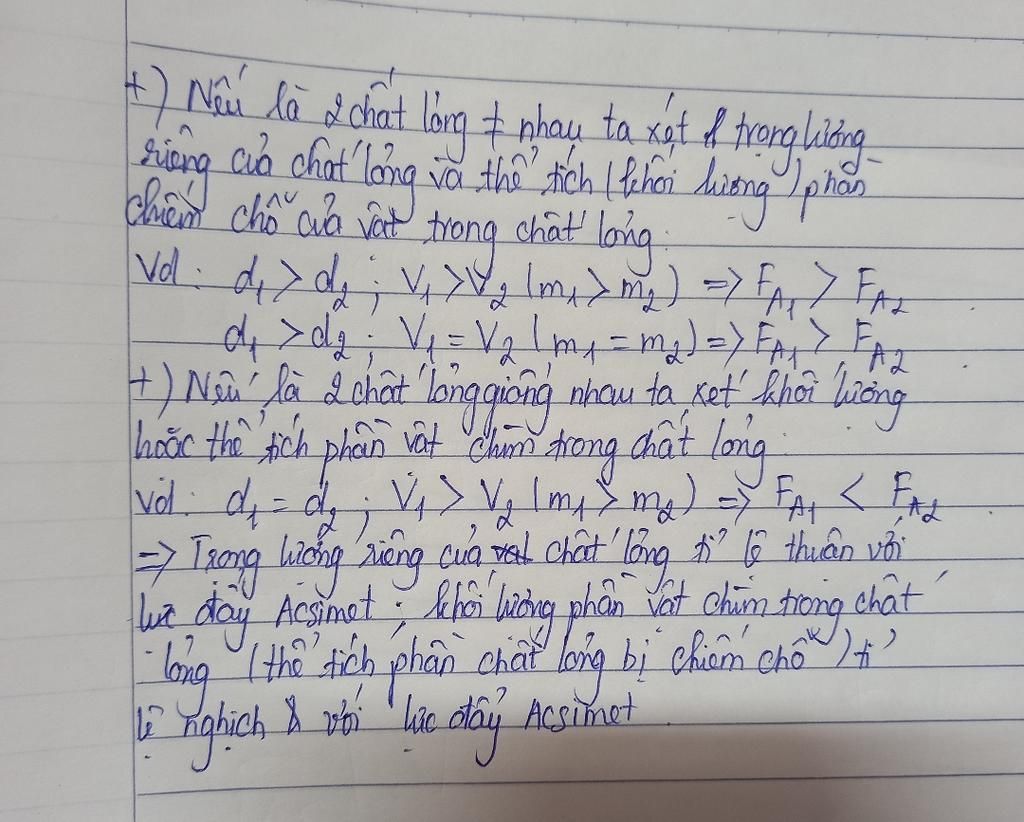 +) Nếu là 2 chất lỏng ≠ nhau ta xét trọng lượng
riêng của chất lỏng và thể tích (khối lượng) phần
chiếm chỗ của vật trong chất lỏng.
Vd: d₁ > d₂ ; V₁ > V₂ (m₁ > m₂) => F_A₁ > F_A₂
d₁ > d₂ ; V₁ = V₂ (m₁ = m₂) => F_A₁ > F_A₂
+) Nếu là 2 chất lỏng giống nhau ta xét khối lượng
hoặc thể tích phần vật chìm trong chất lỏng.
Vd: d₁ = d₂ ; V₁ > V₂ (m₁ > m₂) => F_A₁ < F_A₂
=> Trọng lượng riêng của chất lỏng tỉ lệ thuận với
lực đẩy Acsimet ; khối lượng phần vật chìm trong chất
lỏng (thể tích phần chất lỏng bị chiếm chỗ) tỉ
lệ nghịch với lực đẩy Acsimet.